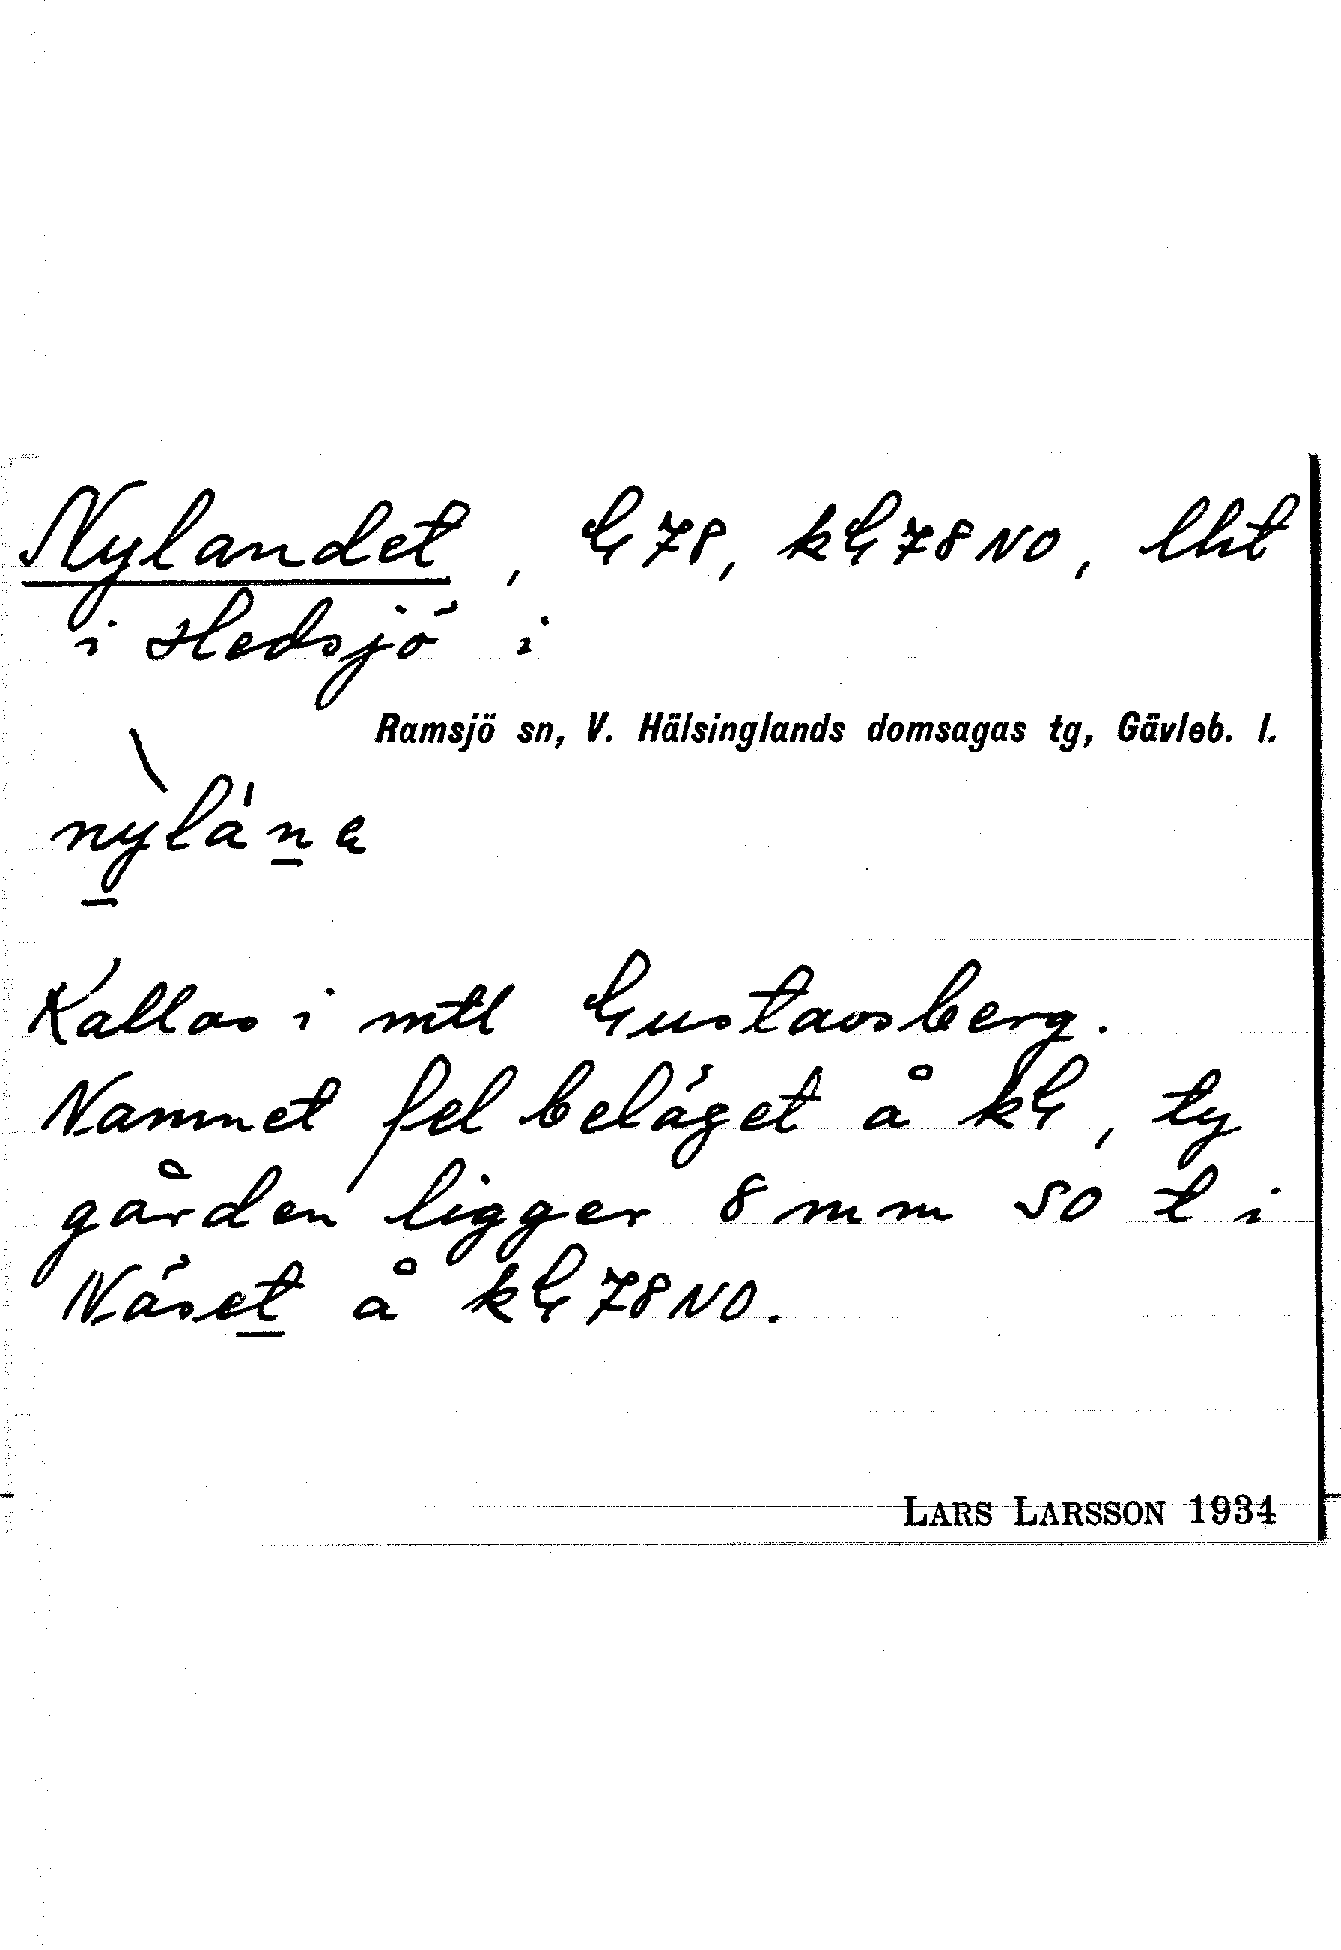 Nylandet, G 78, kG 78 NO, lht
i Hedsjö i
Ramsjö sn, V. Hälsinglands domsagas tg, Gävleb. l.
Kallas i mtl Gustavsberg.
Namnet fel beläget å kG, ty
gården ligger 8 mm SO t i
Näset å kG 78 NO.
LARS LARSSON 1934